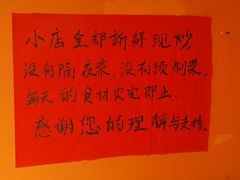 小店全部新鲜现炒
没有隔夜菜,没有预制菜,
每天的食材卖完即止.
感谢您的理解与支持。